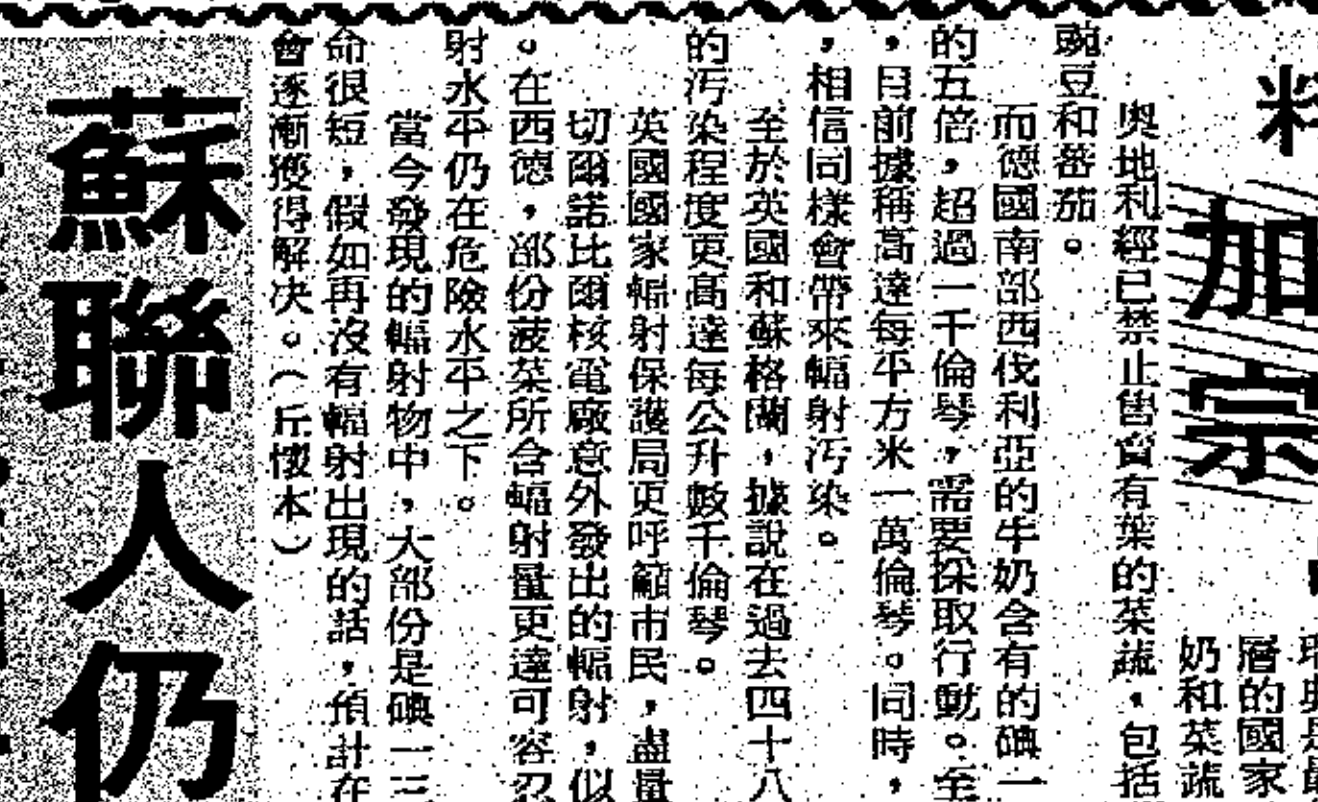 料
加宗
瑞典是
層的國家
奶和菜蔬
奧地利經已禁止售賣有葉的菜蔬，包括
豌豆和蕃茄。
而德國南部西伐利亞的牛奶含有的碘一
的五倍，超過一千倫琴，需要採取行動。至
，目前據稱高達每平方米一萬倫琴。同時，
，相信同樣會帶來輻射汚染。
至於英國和蘇格蘭，據說在過去四十八
的汚染程度更高達每公升數千倫琴。
英國國家輻射保護局更呼籲市民，盡量
切爾諾比爾核電廠意外發出的輻射，似
。在西德，部份菠菜所含輻射量更達可容忍
射水平仍在危險水平之下。
當今發現的輻射物中，大部份是碘一三
命很短，假如再沒有輻射出現的話，預計在
會逐漸獲得解決。（丘懷本）
蘇聯人仍